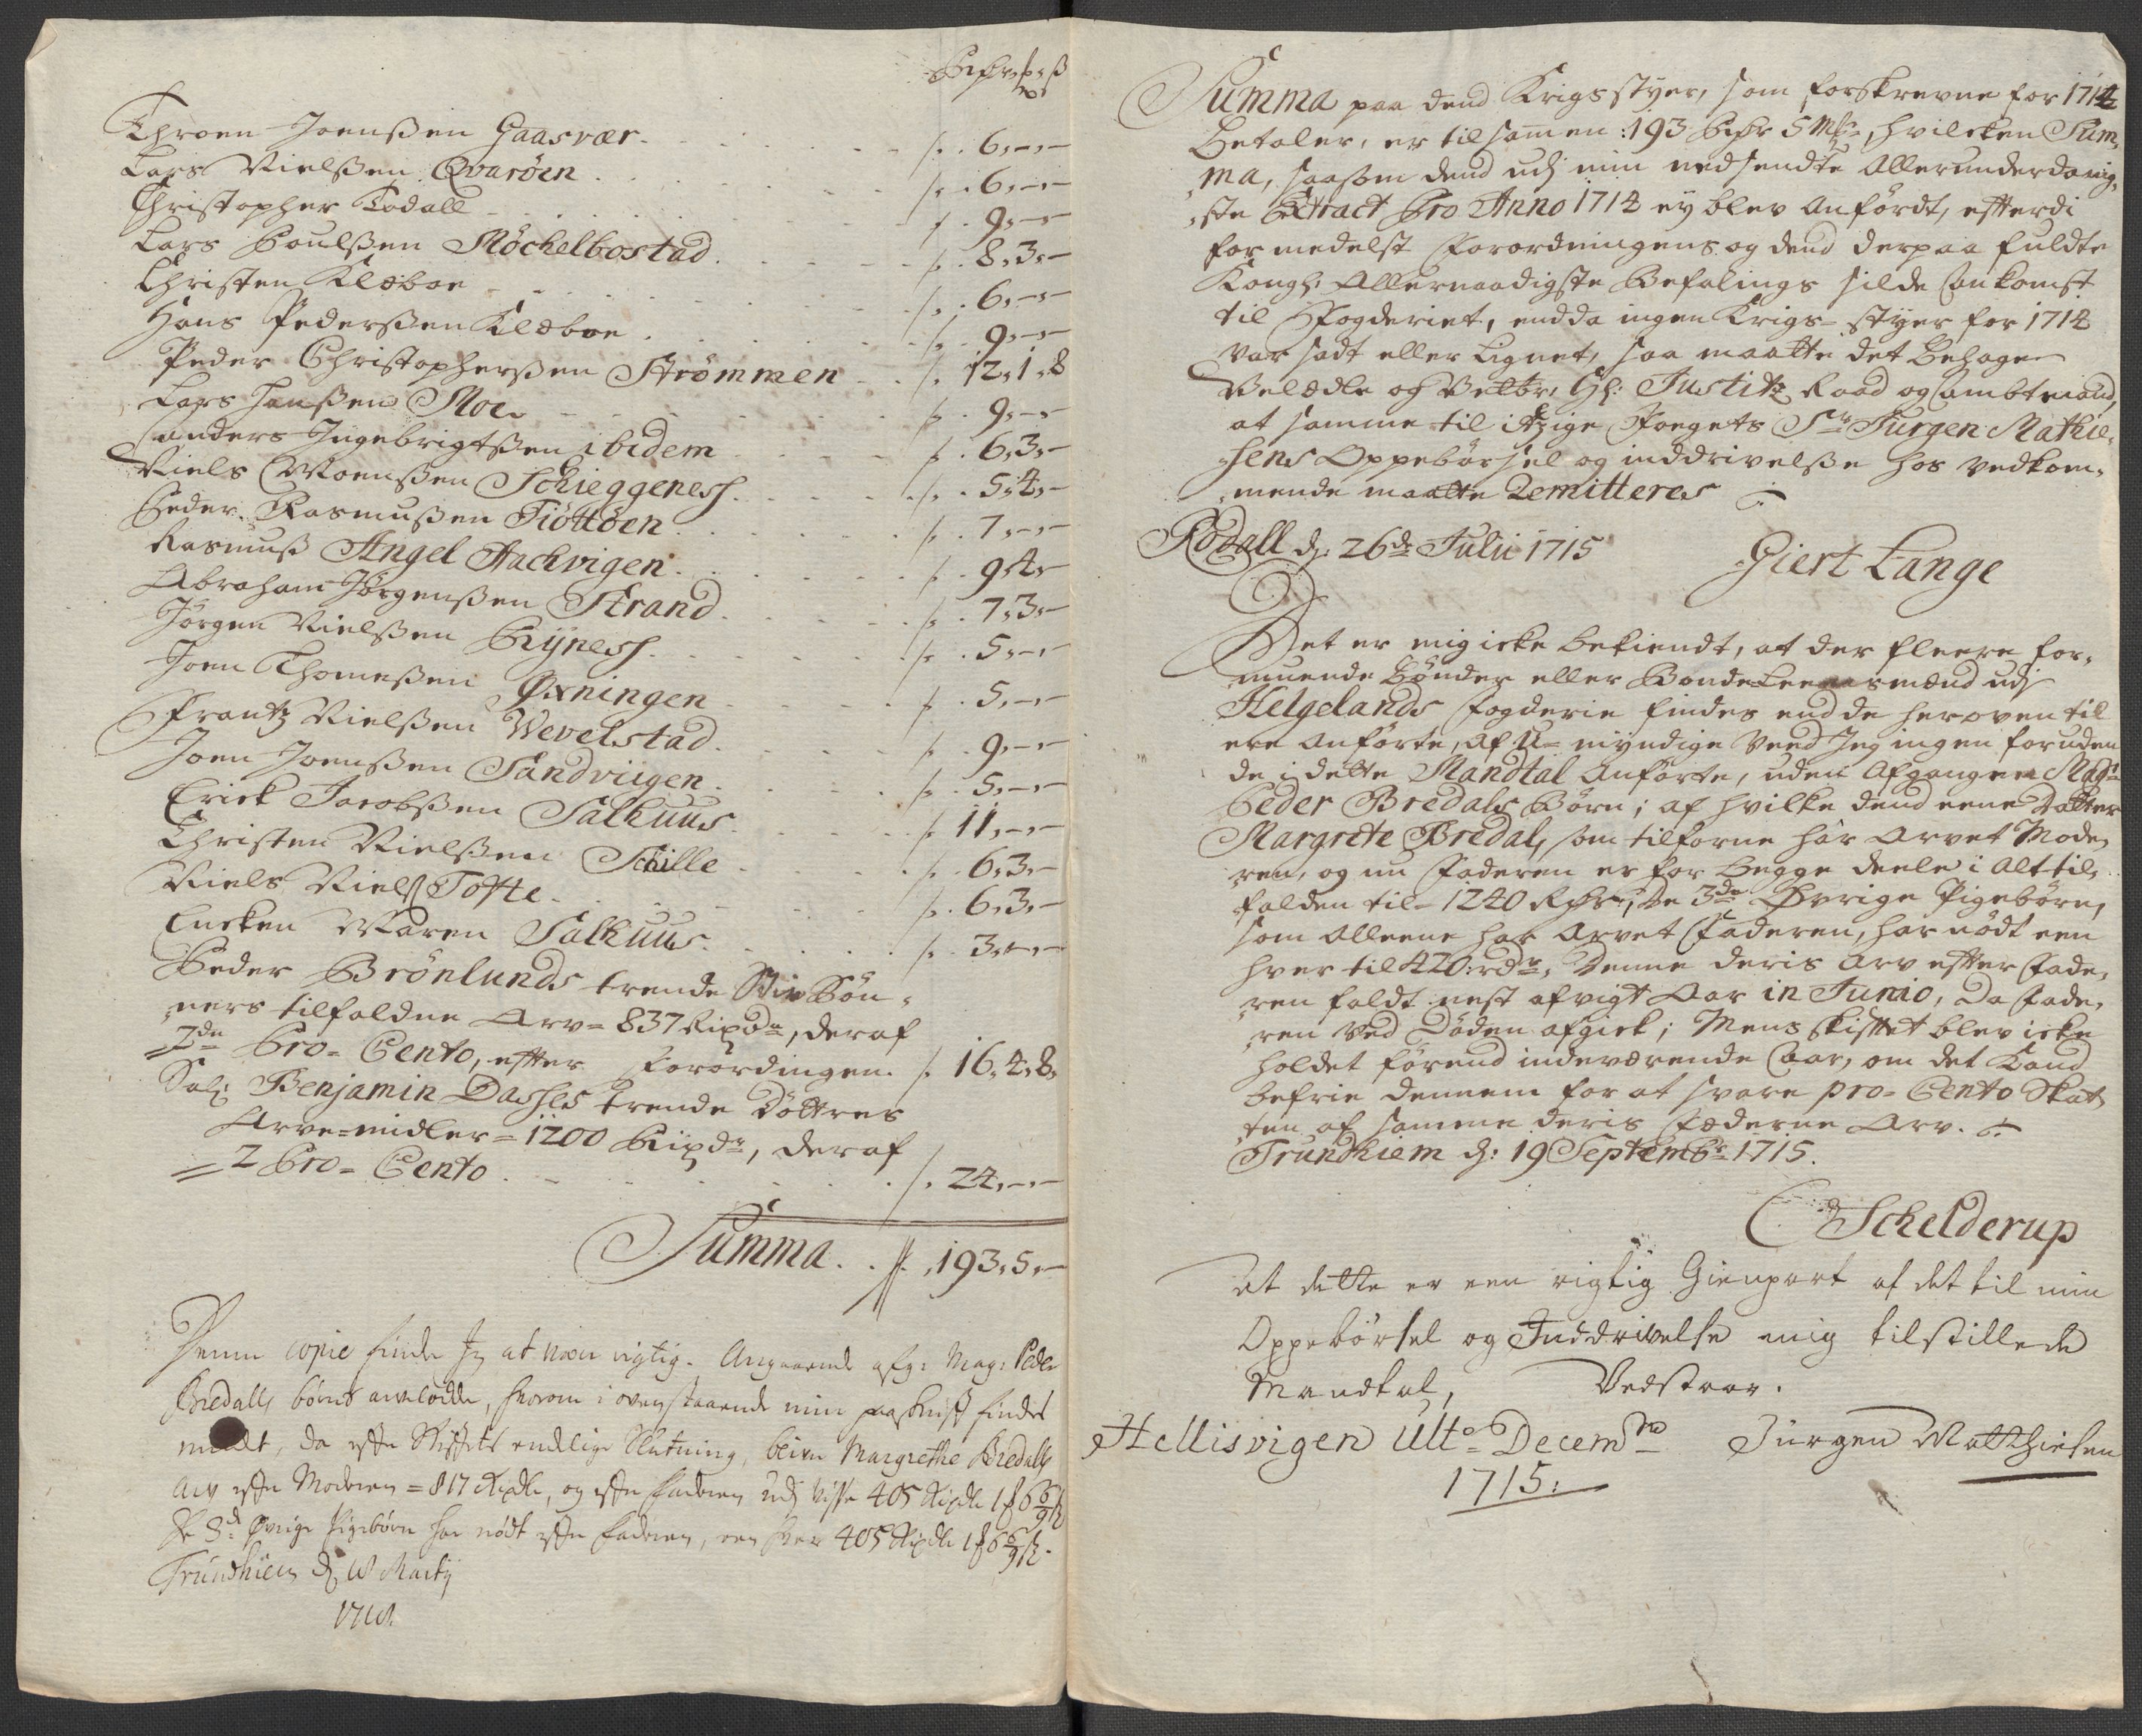 Rixdr, ß
Throen Joenßen Gaasvær . . . /. . 6,-,-
Lars Nielßen Qvarøen . . . /. . 6,-,-
Christopher Todall . . . /. . 9,-,-
Lars Poulßen Møchelbostad . . . /. . 8,3,-
Christen Klæboe . . . /. . 6,-,-
Hans Pederßen Klæboe . . . /. . 9,-,-
Peder Christopherßen Strømmen . . . /. 12,1,8
Lars Hanßen Moe . . . /. . 9,-,-
Anders Ingebrigtßen ibidem . . . /. . 6,3,-
Niels Moenßen Schieggeness . . . /. . 5,4,-
Peder Rasmußen Tiøttøen . . . /. . 7,-,-
Rasmuß Angel Aachvigen . . . /. . 9,4,-
Abraham Jørgenßen Strand . . . /. . 7,3,-
Jørgen Nielßen Rÿness . . . /. . 5,-,-
Joen Thomeßen Øxningen . . . /. . 5,-,-
Frantz Nielßen Wevelstad . . . /. . 9,-,-
Joen Joenßen Sandviigen . . . /. . 5,-,-
Erick Jacobßen Salhuus . . . /. 11,-,-
Christen Nielßen Schille . . . /. . 6,3,-
Niels Niels Tofte . . . /. . 6,3,-
Encken Maren Salhuus . . . /. . 3,-,-
Peder Brønlunds trende Stiv Bøn-
ners tilfaldne Arv = 837 Rixdr, deraf
2de Pro Cento, efter Forordingen . /. 16,4,8,
Sal: Benjamin Dasses trende Døttres
Arve-midler = 1200 Rixdr, deraf
2 Pro Cento . . . /. 24,-,-
Summa . . //. 193,5,-
Denne copie finder Jeg at være rigtig. Angaaende afg: Mag: Peder
Bredalls børns arvelodder, hvorom i ovenstaaende min paaskrift findes
meldt, da efter Skiftets endelige Slutning, bleve Margrethe Bredalls
Arv efter Moderen = 817 Rixdlr, og efter Faderen udj visse 405 Rixdlr 1 6 6/9 ß
De 3de Øvrige Pigebørn har nødt efter Faderen, een hver 405 Rixdlr 1 6 6/9 ß.
Trundhiem dj Martij
Summa paa dend Krigsstyer, som forskrevne for 1714
Betaler, er tilsamen: 193 Rixdr 5 Mk, hvilcken Sum-
ma, saasom dend udj min nedsendte Allerunderdanig-
ste Extract Pro Anno 1714 ey blev Anførdt, efterdi
formedelst Forordningens og dend derpaa fuldte
Kongl: Allernaadigste Befalings silde Ankomst
til Fogderiet, endda ingen Krigs-styer for 1714
var sadt eller Lignet, saa maatte det Behage
Velædle og Velbr. Hr: Justitz Raad og Ambtmand,
at samme til itzige Fogets Sr Jurgen Mathie-
sens Oppebørsel og inddrivelße hos vedkom-
mende maatte Remitteres
Rødall dj: 26de Julii 1715 Giert Lange
Det er mig icke bekiendt, at der fleere for-
muende Bønder eller Bonde Leensmænd udj
Helgelands Fogderie findes end de heroventil
ere Anførte, Af U-myndige veed Jeg ingen foruden
de i dette Mandtal Anførte, uden Afgangne Magr
Peder Bredals Børn; af hvilke dend eene Datter
Margrete Bredal, som tilforne har Arvet Mode-
ren, og nu Faderen er for begge deele i Alt til-
falden til 1240 Rdr; De 3de Øvrige Pigebørn,
som Alleene har Arvet Faderen, har nødt een
hver til 420: rdr, Denne deris Arv efter Fade-
ren faldt nest afvigt Aar in Junio, Da Fade-
ren ved Døden afgick; Mens skiftet blev icke
holdet førend indeværende Aar, om det Kand
befrie dennem for at svare pro Cento Skat-
ten af samme deris Fæderne Arv.
Trundhiem dj: 19 Septembr 1715.
Schelderup
At dette er een rigtig Gienpart af det til min
Oppebørsel og Inddrivelse mig tilstillede
Mandtal, Vedstaar.
Hellisvigen Ulto Decembr Jürgen Matthiesen
1715: